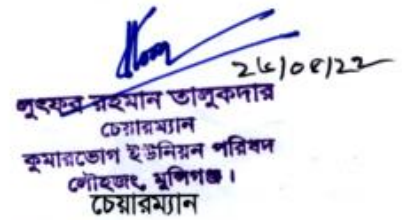 লুৎফর রহমান তালুকদার
চেয়ারম্যান
কুমারভোগ ইউনিয়ন পরিষদ
লৌহজং, মুন্সিগঞ্জ।
চেয়ারম্যান